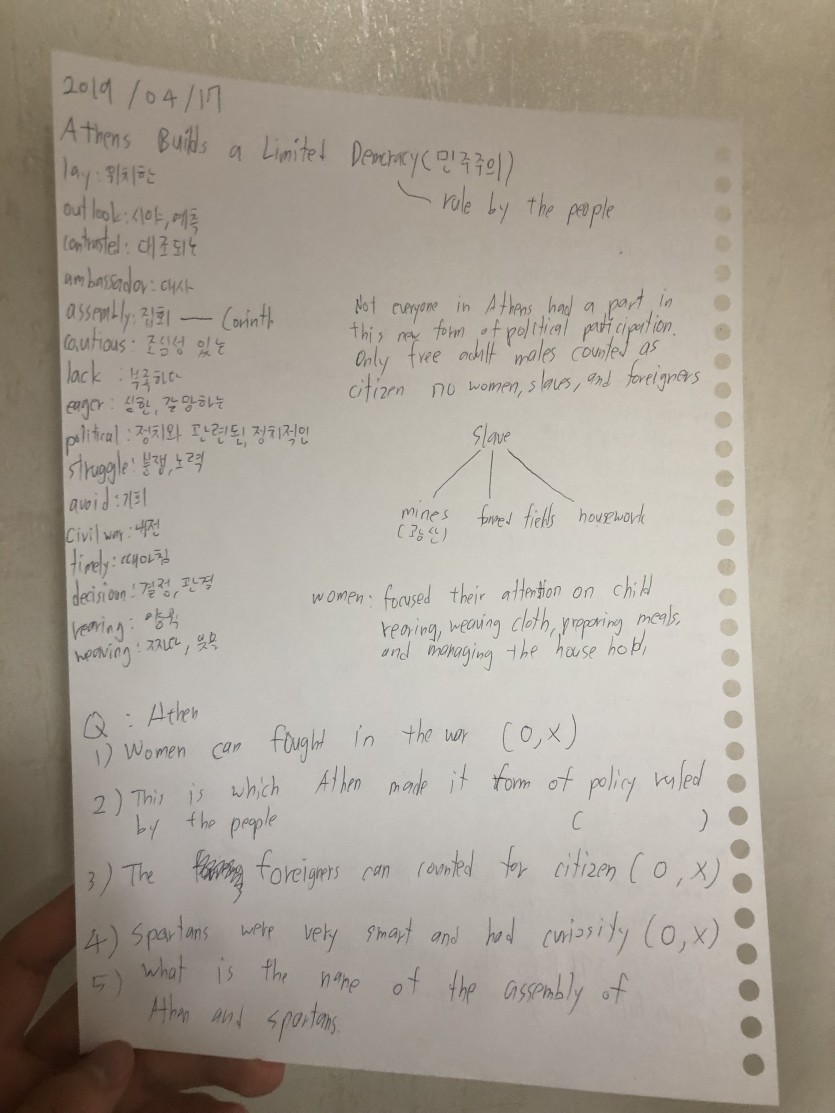 2019/04/17
Athens Builds a Limited Demcracy(민주주의)
rule by the people
lay: 위치한
outlook: 시야, 예측
contrasted: 대조되는
ambassador: 대사
assembly: 집회 — Corinth
cautious: 조심성 있는
lack : 부족하다
eager: 심한, 갈망하는
political: 정치와 관련된, 정치적인
struggle: 분쟁, 노력
avoid: 기피
Civil war: 내전
timely: 때마침
decision: 결정, 판결
rearing: 양육
weaving: 짜다,
Not everyone in Athens had a part in
this new form of political participation.
Only free adult males counted as
citizen no women, slaves, and foreigners
Slave
mines farmed fields housework
(광산)
women: focused their attention on child
rearing, weaving cloth, preparing meals,
and managing the house hold,
Q : Athen
1) Women can fought in the war (O,X)
2) This is which Athen made it form of policy ruled
by the people ( )
3) The foreigners can counted for citizen (O,X)
4) Spartans were very smart and had curiosity (O,X)
5) What is the name of the assembly of
Athen and spartans.